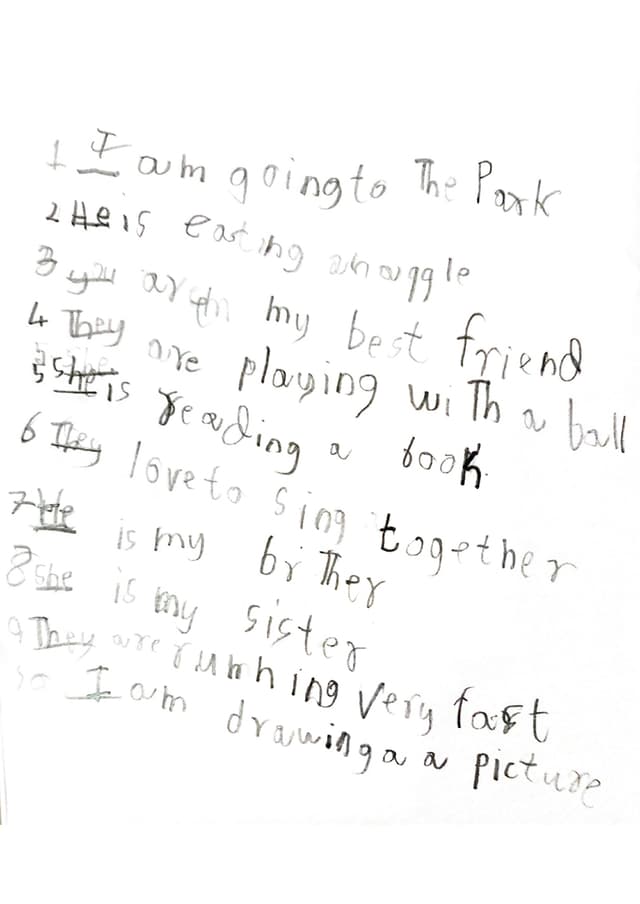 1 I am going to The Park
2 He is eating an aggle
3 you are my best friend
4 They are playing with a ball
5 She is reading a book.
6 They love to sing together
7 He is my br ther
8 She is my sister
9 They are running very fast
10 I am drawing a a picture